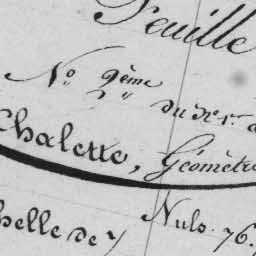 Feuille
N.o 9ème
du N.o 1.er
Chalette, Géomètre
helle de 7
Nulo. 76.